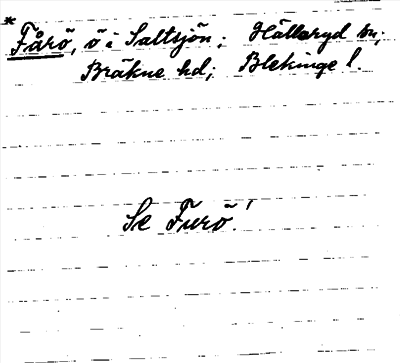 *Fårö, ö i Saltsjön; Hällaryd sn;
Bräkne hd; Blekinge l.
Se Furö!